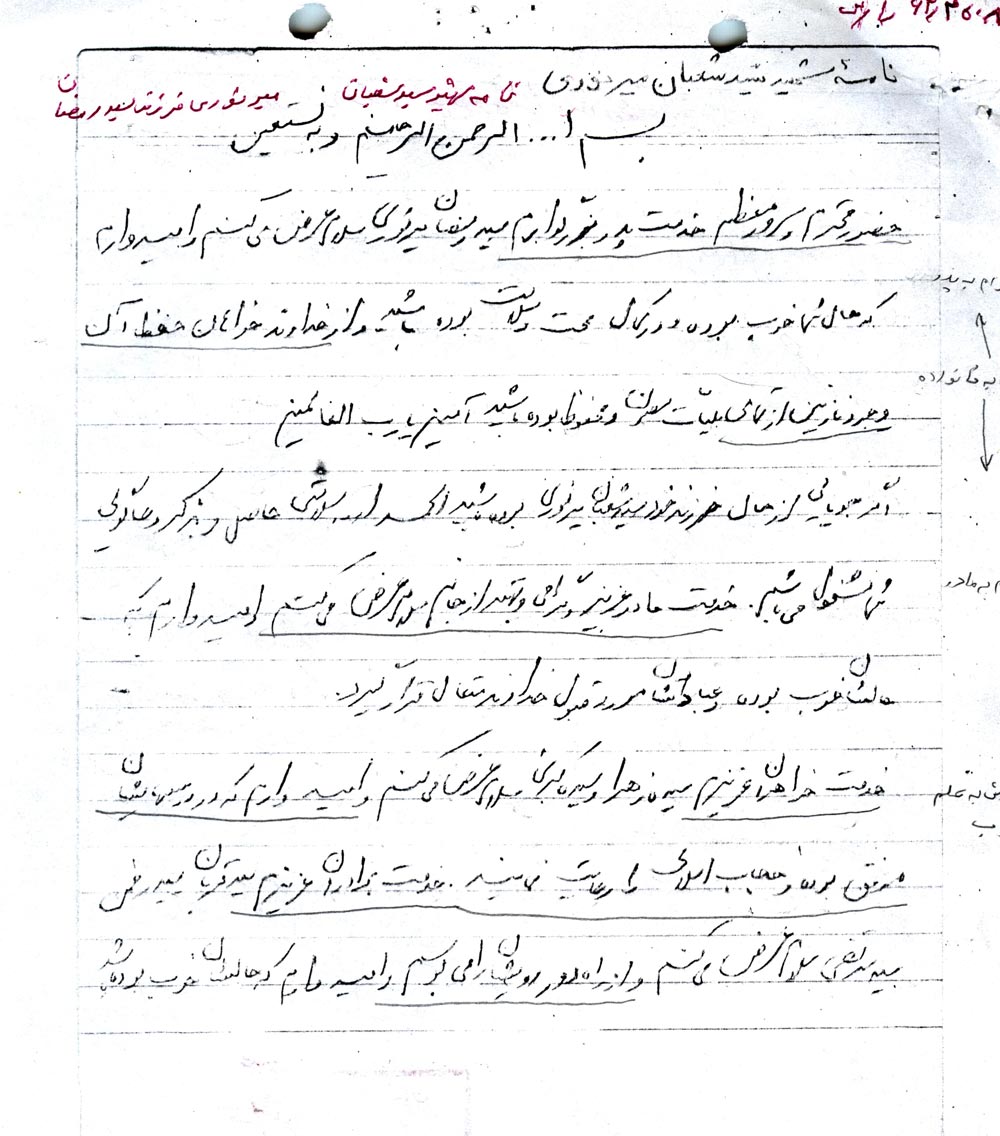 نامهٔ شهید سید شعبان میر نوری
نامه شهید سید شعبان میر نوری فرزند سید رمضان
بسم ا... الرحمن الرحیم و به نستعین
حضور محترم و سرور معظم خدمت پدر بزرگوارم سید رمضان میرنوری سلام عرض می‌کنم و امیدوارم
که حال شما خوب بوده و در کمال صحت و سلامت بوده باشید و از خداوند خواهان حفظ آن
وجود نازنین از تمامی بلیات مصون و محفوظ بوده باشید آمین یا رب العالمین
اگر جویایی از حال فرزند خود سید شعبان میرنوری بوده باشید الحمد ا... سلامتی حاصل و بذکر دعاگوئی
شما مشغول می‌باشم. خدمت مادر عزیز و گرامی و بهتر از جانم سلام عرض می‌کنم امیدوارم که
حالشان خوب بوده و عباداتشان مورد قبول خداوند متعال قرار گیرد.
خدمت خواهران عزیزم سیده زهرا و سیده کبری سلام عرض می‌کنم و امید وارم که در درسهایشان
موفق بوده و حجاب اسلامی را رعایت نمایند. خدمت برادران عزیزم سید قربان سید رضی
سید مرتضی سلام عرض می‌کنم و از راه دور رویشان را می بوسم و امید وارم که حالشان خوب بوده باشد
به خانواده
به مادر